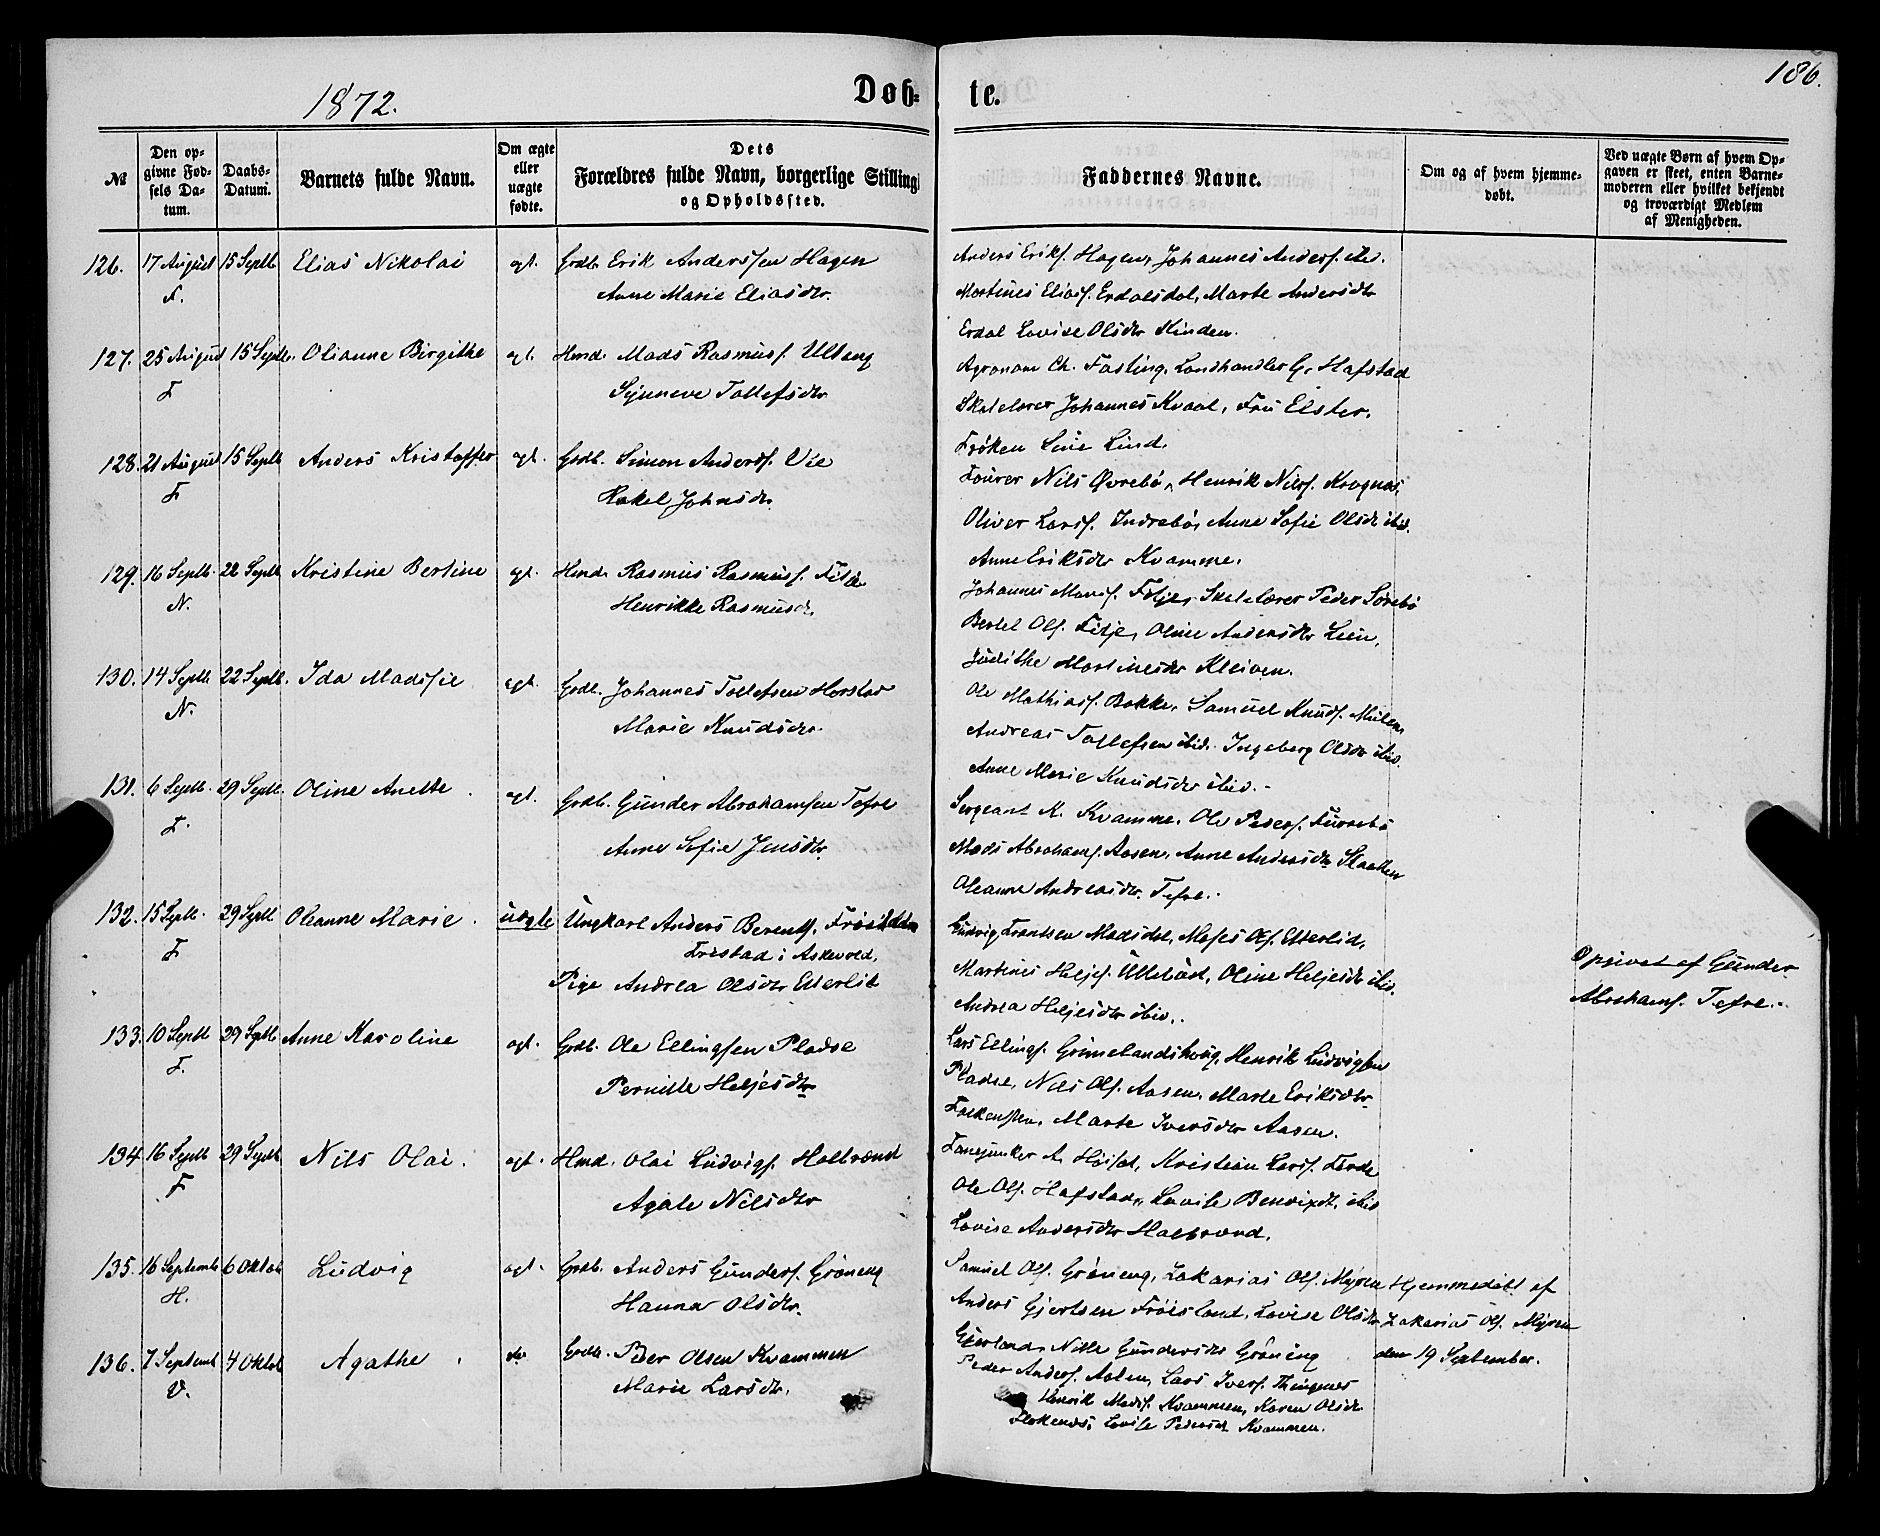 1872.
Døb-
te.
186.
№
Den opgivne Fødsels Datum.
Daabs-Datum.
Barnets fulde Navn.
Om ægte eller uægte fødte.
Dets Forældres fulde Navn, borgerlige Stilling og Opholdssted.
Faddernes Navne.
Om og af hvem hjemmedøbt.
Ved uægte Børn af hvem Opgaven er skeet, enten Barnemoderen eller hvilket bekjendt og troværdigt Medlem af Menigheden.
126. 17 August 15 Septb Elias Nikolai ægt. Grdb. Erik Anderssen Hagen
F. Anne Marie Eliasdtr.
Anders Eriks. Hagen, Johannes Anders. ibd.
Martines Elias. Erdalsdal, Marte Andersdtr
Erdal Lovise Olsdtr Kinden.
127. 25 August 15 Septb. Olianne Birgithe ægt. Hmd. Mads Rasmuss. Ullung
F Synneve Tollefsdtr
Agronom Ch. Fasting, Landhandler G. Hafstad
Skolelærer Johannes Kvaal, Fru Elster,
Frøken Line Lind.
128. 21 August 15 Septb Anders Kristoffer ægt. Grdb. Simon Anders. Vie
F Rakel Johnsdtr.
Fourer Nils Øvrebø, Henrik Nils. Krognæs,
Oliver Lars. Indrebø, Anne Sofie Olsdtr ibd.
Anne Eriksdtr Kvamme.
129. 16 Septb. 22 Septb Kristine Bertine ægt. Hmd. Rasmus Rasmuss.
N. Henrikke Rasmusd.
Johannes Skolelærer Peder Sørebø
Bertel Ols. Fitje, Oline Andersdtr Lien,
Judithe Martinesdtr Kleiven.
130. 14 Septb 22 Septb. Ida Madssie ægt. Grdb. Johannes Tollefsen Horstad
N. Marie Knudsdtr.
Ole Mathias. Bakke, Samuel Knuds. Mulen
Andreas Tollefsen ibid. Ingeborg Olsdtr ibid.
Anne Marie Knudsdtr ibid.
131. 6 Septb. 29 Septb. Oline Anette ægt. Grdb. Gunder Abrahamsen Tefre
F. Anne Sofie Jensdtr.
Sergeant A. Kvamme. Ole Peders. Furrebø
Mads Abrahams. Aasen, Anne Andersdtr Slaatten
Oleanne Andreasdtr. Tefre.
132. 15 Septb. 29 Septb Oleanne Marie uægte Ungkarl Anders Berents.
F Fristad i Askevold,
Pige Andrea Olsdtr Etterlid
Ludvig Frantsen Madsdal, Moses Ols. Etterlid,
Martines Heljes. Ullebust, Oline Heljesdtr ibid.
Andrea Heljesdtr ibid.
Opgivet af Gunder
Abrahams. Tefre.
133. 10 Septb 29 Septb Anne Karoline ægt. Grdb. Ole Ellingsen Pladse
F. Pernille Heljesdtr
Lars Ellings. Grimelandshaug, Henrik Ludvigsen
Pladse, Nils Ols. Aasen, Marte Eriksdtr
Falkensten, Marte Iversdtr Aasen.
134 16 Septb 29 Septb Nils Olai. ægt. Hmd. Olai Ludvigs. Halbrend
F Agate Nilsdtr
Fanejunker A. Høist, Kristian Lars. Førde
Ole Ols. Hafstad, Lovise Bendixdt. ibid
Lovise Andersdtr Halbrend.
135. 16 Septemb 6 Oktob Ludvig ægt. Grdb. Anders Gunders. Grøneng
H. Hanna Olsdtr.
Samuel Ols. Grøneng, Zakarias Ols. Myren
Anders Gjertsen Frøisland, Lovise Olsdtr
Gjerland, Nille Gundersdtr Grøneng
Hjemmedøbt af
Zakarias Ols. Myren
den 19 September.
136. 7 Septemb 4 Oktob Agathe do Grdb. Peder Olsen Kvammen
V. Marie Larsdtr.
Peder Anders. Aasen, Lars Ivers. Thingnes
Henrik Mads. Kvammen, Karen Olsdtr
Flokenes, Lovise Pedersdtr Kvammen.